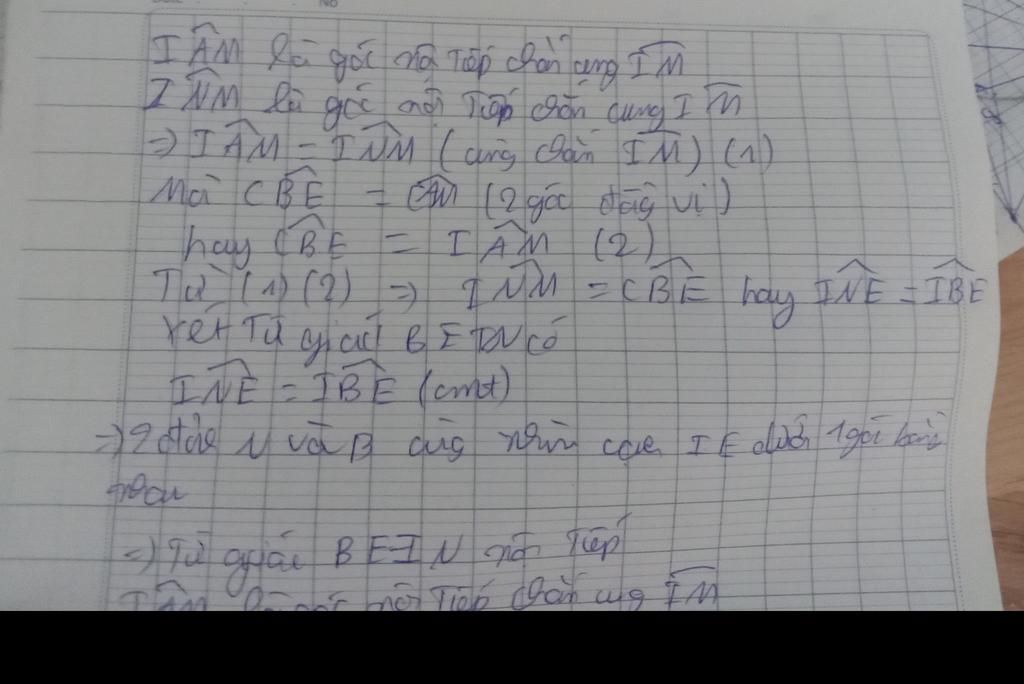 No
IÂM là góc nội tiếp chắn cung IM
IN̂M là góc nội tiếp chắn cung IM
=> IÂM = IN̂M (cùng chắn IM) (1)
Mà CB̂E = CÂM (2 góc đồng vị)
hay CB̂E = IÂM (2)
Từ (1) (2) => IN̂M = CB̂E hay IN̂E = IB̂E
Xét tứ giác BEIN có
IN̂E = IB̂E (cmt)
=> 2 đỉnh N và B cùng nhìn cạnh IE dưới 1 góc bằng
nhau
=> Tứ giác BEIN nội tiếp
IÂM là góc nội tiếp chắn cung IM